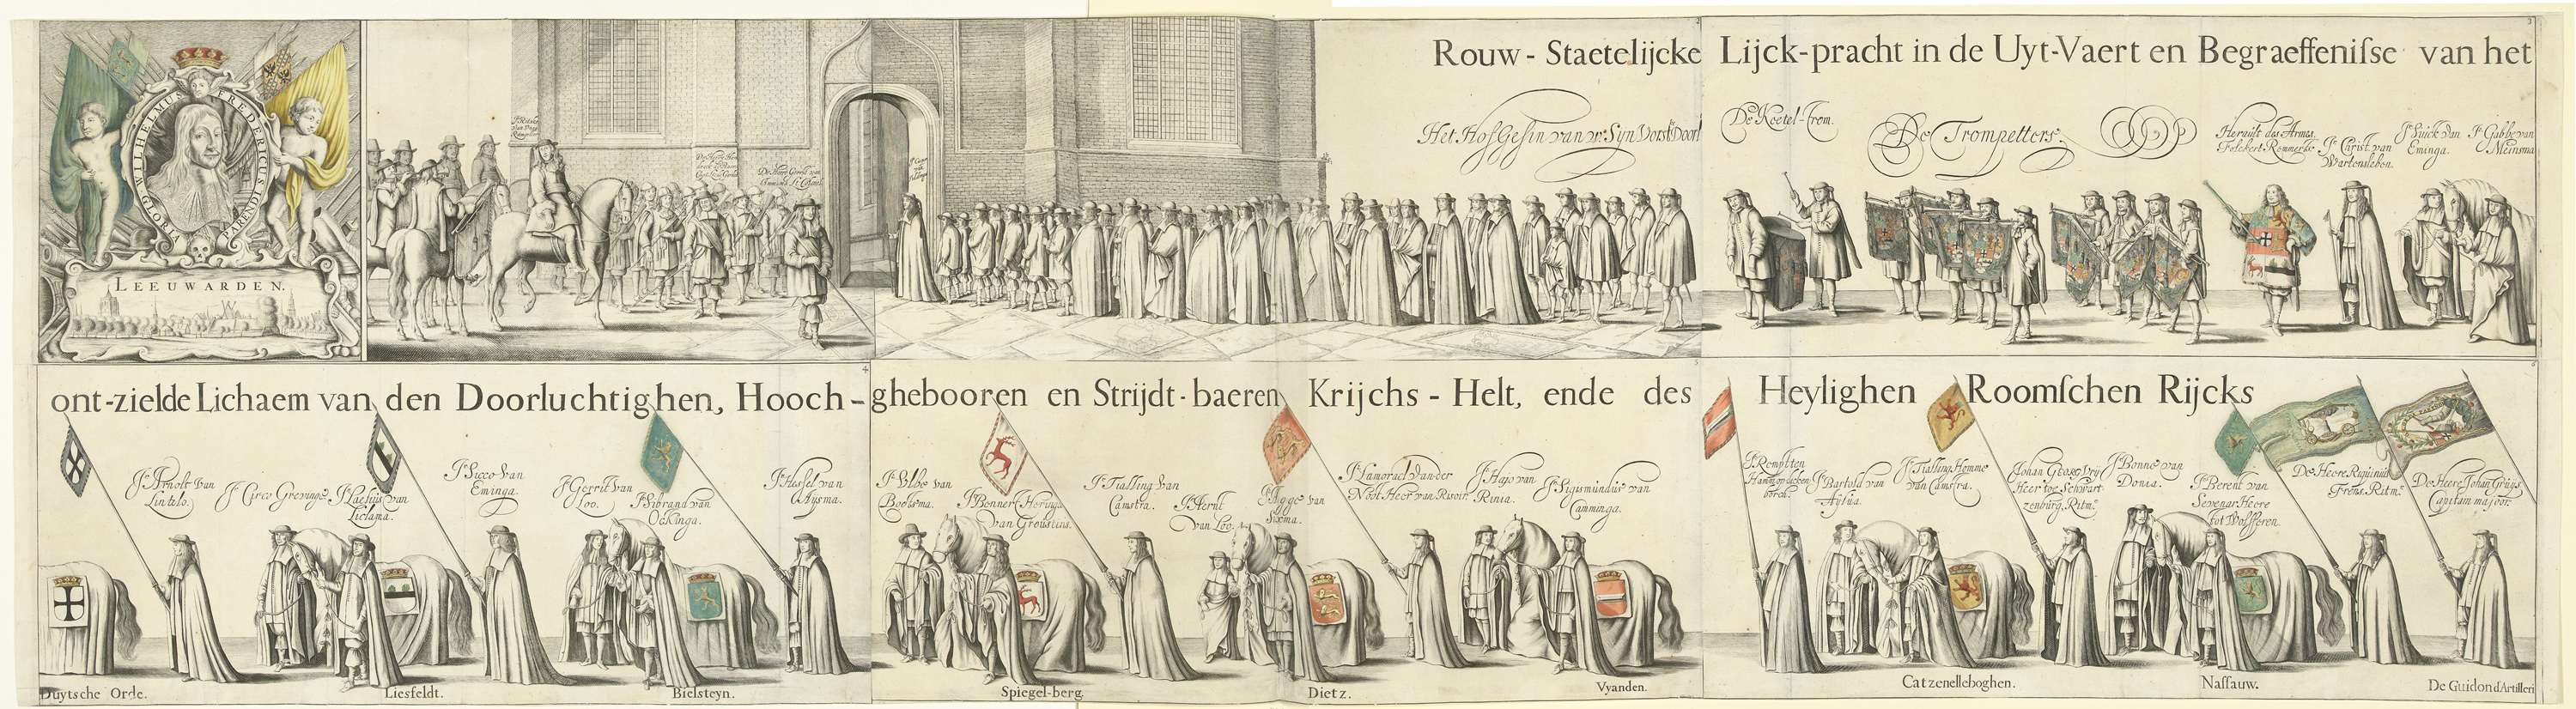 WILLHELMUS FREDERICUS I
GLORIA PARENDI
LEEUWARDEN.
Rouw-Staetelijcke Lijck-pracht in de Uyt-Vaert en Begraeffeniſse van het
Het Hof Geſin van w: Syn Vorst: Doorl
De Keetel-trom.
De Trompetters.
Herault des Armes
Folckert Remmerda
Jr. Christ van
Wartensleben.
Jr. Suick van
Eminga.
Jr. Gabbe van
Meinsma
ont-zielde Lichaem van den Doorluchtighen, Hooch-ghebooren en Strijdt-baeren Krijchs-Helt, ende des Heylighen Roomſchen Rijcks
Jr. Arnolt van
Lintelo.
Jr. Circo Grevinge
Jr. Laelius van
Liclama.
Jr. Sicco van
Eminga.
Jr. Gerrit van
Loo.
Jr. Sibrand van
Ockinga.
Jr. Hessel van
Aysma.
Jr. Ulbe van
Boelsma.
Jr. Bennert Heringa
van Groustins.
Jr. Tialling van
Camstra.
Jr. Aernt
van Loo.
Jr. Agge van
Sixma.
Jr. Lamorael van der
Noot Heer van Risoir.
Jr. Hajo van
Rinia.
Jr. Sigismundus van
Camminga.
Jr. Bartold van
Aylua.
Jr. Tialling Homme
van Camstra.
Johan Georg Vry
Heer toe Schwart-
zenburg, Ritmr.
Jr. Bonne van
Donia.
Jr. Berent van
Sevenar Heere
tot Wolfferen.
De Heere
Frens. Ritmr.
De Heere Johan
Capitain majoor.
Duytsche Orde.
Liesfeldt.
Bielsteyn.
Spiegel-berg
Dietz.
Vyanden.
Catzenelleboghen.
Naſſauw.
De Guidon d'Artilleri